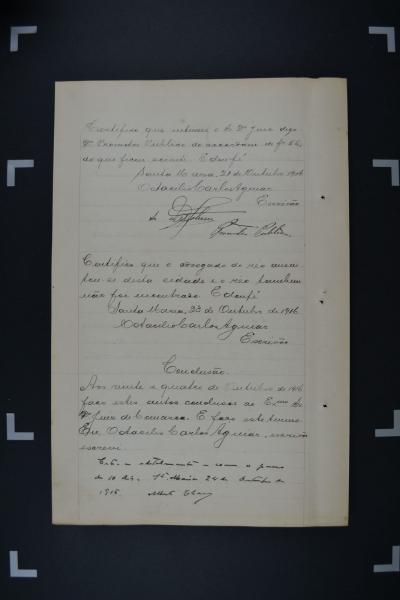 Certifico que intimei o Dr Juiz digo
Dr Promotor Publico do accordam de fs
do que ficou sciente. E dou fé
Santa Maria, 21 de Outubro 1916
Octacilio Carlos Aguiar
Escrivão
Promotor Publico
Certifico que o advogado do reo ausen
tou-se desta cidade e o reo tambem
não foi incontrado. E dou fé
Santa Maria, 23 de Outubro de 1916
Octacilio Carlos Aguiar
Escrivão
Conclusão.
Aos vinte e quatro de Outubro de 1916
faço estes autos conclusos ao Exmo Sr
Dr Juiz de Comarca. E faço este termo.
Eu, Octacilio Carlos Aguiar, escrivão
escrevi.
com o praso
de 10 dias. Sta Maria 24 de Outubro de
1916.